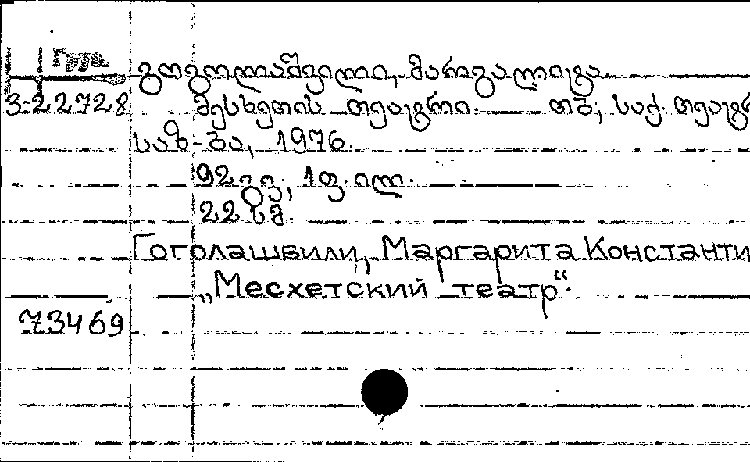 Груз
გოგოლაშვილი, მარგალიტა
3-22728 მესხეთის თეატრი. თბ; საქ. თეატრ
საზ-ბა, 1976.
92 გვ; 1ფ. ილ.
22 სმ.
Гоголашвили, Маргарита Константи
„Месхетский театр“.
73469